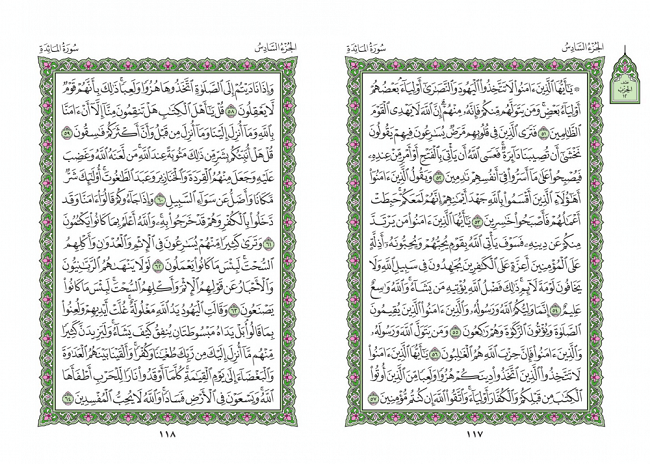 الجُزْءُ السَّادِسُ سُورَةُ المَائِدَةِ
۞ يَٰٓأَيُّهَا ٱلَّذِينَ ءَامَنُوا۟ لَا تَتَّخِذُوا۟ ٱلْيَهُودَ وَٱلنَّصَٰرَىٰٓ أَوْلِيَآءَ ۘ بَعْضُهُمْ
أَوْلِيَآءُ بَعْضٍ ۚ وَمَن يَتَوَلَّهُم مِّنكُمْ فَإِنَّهُۥ مِنْهُمْ ۗ إِنَّ ٱللَّهَ لَا يَهْدِى ٱلْقَوْمَ
ٱلظَّٰلِمِينَ ٥١ فَتَرَى ٱلَّذِينَ فِى قُلُوبِهِم مَّرَضٌ يُسَٰرِعُونَ فِيهِمْ يَقُولُونَ
نَخْشَىٰٓ أَن تُصِيبَنَا دَآئِرَةٌ ۚ فَعَسَى ٱللَّهُ أَن يَأْتِىَ بِٱلْفَتْحِ أَوْ أَمْرٍ مِّنْ عِندِهِۦ
فَيُصْبِحُوا۟ عَلَىٰ مَآ أَسَرُّوا۟ فِىٓ أَنفُسِهِمْ نَٰدِمِينَ ٥٢ وَيَقُولُ ٱلَّذِينَ ءَامَنُوٓا۟
أَهَٰٓؤُلَآءِ ٱلَّذِينَ أَقْسَمُوا۟ بِٱللَّهِ جَهْدَ أَيْمَٰنِهِمْ ۙ إِنَّهُمْ لَمَعَكُمْ ۚ حَبِطَتْ
أَعْمَٰلُهُمْ فَأَصْبَحُوا۟ خَٰسِرِينَ ٥٣ يَٰٓأَيُّهَا ٱلَّذِينَ ءَامَنُوا۟ مَن يَرْتَدَّ
مِنكُمْ عَن دِينِهِۦ فَسَوْفَ يَأْتِى ٱللَّهُ بِقَوْمٍ يُحِبُّهُمْ وَيُحِبُّونَهُۥٓ أَذِلَّةٍ
عَلَى ٱلْمُؤْمِنِينَ أَعِزَّةٍ عَلَى ٱلْكَٰفِرِينَ يُجَٰهِدُونَ فِى سَبِيلِ ٱللَّهِ وَلَا
يَخَافُونَ لَوْمَةَ لَآئِمٍ ۚ ذَٰلِكَ فَضْلُ ٱللَّهِ يُؤْتِيهِ مَن يَشَآءُ ۚ وَٱللَّهُ وَٰسِعٌ
عَلِيمٌ ٥٤ إِنَّمَا وَلِيُّكُمُ ٱللَّهُ وَرَسُولُهُۥ وَٱلَّذِينَ ءَامَنُوا۟ ٱلَّذِينَ يُقِيمُونَ
ٱلصَّلَوٰةَ وَيُؤْتُونَ ٱلزَّكَوٰةَ وَهُمْ رَٰكِعُونَ ٥٥ وَمَن يَتَوَلَّ ٱللَّهَ وَرَسُولَهُۥ
وَٱلَّذِينَ ءَامَنُوا۟ فَإِنَّ حِزْبَ ٱللَّهِ هُمُ ٱلْغَٰلِبُونَ ٥٦ يَٰٓأَيُّهَا ٱلَّذِينَ ءَامَنُوا۟
لَا تَتَّخِذُوا۟ ٱلَّذِينَ ٱتَّخَذُوا۟ دِينَكُمْ هُزُوًا وَلَعِبًا مِّنَ ٱلَّذِينَ أُوتُوا۟
ٱلْكِتَٰبَ مِن قَبْلِكُمْ وَٱلْكُفَّارَ أَوْلِيَآءَ ۚ وَٱتَّقُوا۟ ٱللَّهَ إِن كُنتُم مُّؤْمِنِينَ ٥٧
١١٧
الحِزْب
١٢
الجُزْءُ السَّادِسُ سُورَةُ المَائِدَةِ
وَإِذَا نَادَيْتُمْ إِلَى ٱلصَّلَوٰةِ ٱتَّخَذُوهَا هُزُوًا وَلَعِبًا ۚ ذَٰلِكَ بِأَنَّهُمْ قَوْمٌ
لَّا يَعْقِلُونَ ٥٨ قُلْ يَٰٓأَهْلَ ٱلْكِتَٰبِ هَلْ تَنقِمُونَ مِنَّآ إِلَّآ أَنْ ءَامَنَّا
بِٱللَّهِ وَمَآ أُنزِلَ إِلَيْنَا وَمَآ أُنزِلَ مِن قَبْلُ وَأَنَّ أَكْثَرَكُمْ فَٰسِقُونَ ٥٩
قُلْ هَلْ أُنَبِّئُكُم بِشَرٍّ مِّن ذَٰلِكَ مَثُوبَةً عِندَ ٱللَّهِ ۚ مَن لَّعَنَهُ ٱللَّهُ وَغَضِبَ
عَلَيْهِ وَجَعَلَ مِنْهُمُ ٱلْقِرَدَةَ وَٱلْخَنَازِيرَ وَعَبَدَ ٱلطَّٰغُوتَ ۚ أُو۟لَٰٓئِكَ شَرٌّ
مَّكَانًا وَأَضَلُّ عَن سَوَآءِ ٱلسَّبِيلِ ٦٠ وَإِذَا جَآءُوكُمْ قَالُوٓا۟ ءَامَنَّا وَقَد
دَّخَلُوا۟ بِٱلْكُفْرِ وَهُمْ قَدْ خَرَجُوا۟ بِهِۦ ۚ وَٱللَّهُ أَعْلَمُ بِمَا كَانُوا۟ يَكْتُمُونَ
٦١ وَتَرَىٰ كَثِيرًا مِّنْهُمْ يُسَٰرِعُونَ فِى ٱلْإِثْمِ وَٱلْعُدْوَٰنِ وَأَكْلِهِمُ
ٱلسُّحْتَ ۚ لَبِئْسَ مَا كَانُوا۟ يَعْمَلُونَ ٦٢ لَوْلَا يَنْهَىٰهُمُ ٱلرَّبَّٰنِيُّونَ
وَٱلْأَحْبَارُ عَن قَوْلِهِمُ ٱلْإِثْمَ وَأَكْلِهِمُ ٱلسُّحْتَ ۚ لَبِئْسَ مَا كَانُوا۟
يَصْنَعُونَ ٦٣ وَقَالَتِ ٱلْيَهُودُ يَدُ ٱللَّهِ مَغْلُولَةٌ ۚ غُلَّتْ أَيْدِيهِمْ وَلُعِنُوا۟
بِمَا قَالُوا۟ ۘ بَلْ يَدَاهُ مَبْسُوطَتَانِ يُنفِقُ كَيْفَ يَشَآءُ ۚ وَلَيَزِيدَنَّ كَثِيرًا
مِّنْهُم مَّآ أُنزِلَ إِلَيْكَ مِن رَّبِّكَ طُغْيَٰنًا وَكُفْرًا ۚ وَأَلْقَيْنَا بَيْنَهُمُ ٱلْعَدَٰوَةَ
وَٱلْبَغْضَآءَ إِلَىٰ يَوْمِ ٱلْقِيَٰمَةِ ۚ كُلَّمَآ أَوْقَدُوا۟ نَارًا لِّلْحَرْبِ أَطْفَأَهَا
ٱللَّهُ ۚ وَيَسْعَوْنَ فِى ٱلْأَرْضِ فَسَادًا ۚ وَٱللَّهُ لَا يُحِبُّ ٱلْمُفْسِدِينَ ٦٤
١١٨